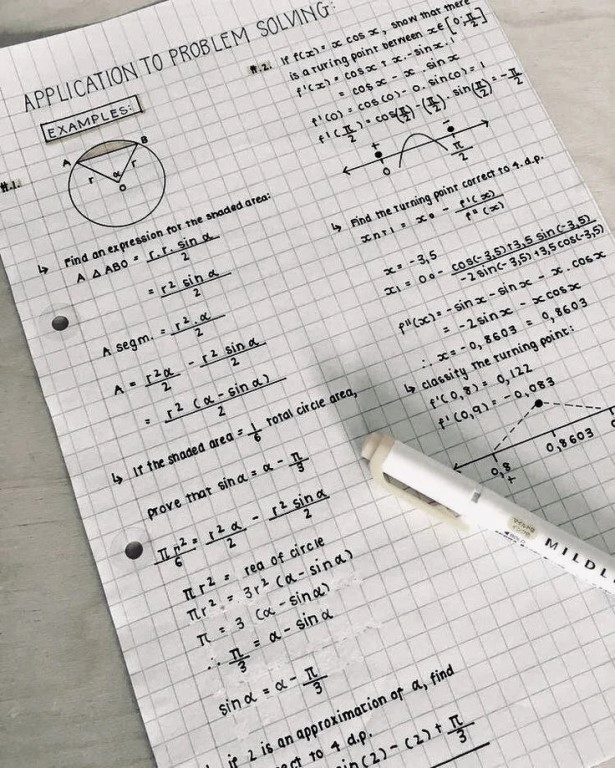 APPLICATION TO PROBLEM SOLVING:
EXAMPLES:
#.1.
A B
r r
α
O
↳ Find an expression for the shaded area:
A △ ABO = r.r. sin α / 2
= r² sin α / 2
A segm. = r². α / 2
A = r²α / 2 - r² sin α / 2
= r² (α - sin α) / 2
↳ If the shaded area = 1/6 total circle area,
prove that sin α = α - π/3
π r² / 6 = r² α / 2 - r² sin α / 2
π r² = rea of circle
π r² = 3r² (α - sin α)
π = 3 (α - sin α)
∴ π/3 = α - sin α
sin α = α - π/3
if 2 is an approximation of α, find
ect to 4 d.p.
sin(2) - (2) + π/3
#.2. If f(x) = x cos x, show that there
is a turing point between x ∈ [0; π/2]
f'(x) = cos x + x . - sin x . 1
= cos x - x . sin x
f'(0) = cos(0) - 0. sin(0) = 1
f'(π/2) = cos(π/2) - (π/2) . sin(π/2) = - π/2
+ -
0 π/2
↳ Find the turning point correct to 4. d.p.
xn+1 = x0 - f'(x) / f''(x)
x = -3,5
cos(-3,5) + 3,5 sin(-3,5)
-2 sin(-3,5) + 3,5 cos(-3,5)
f''(x) = - sin x - sin x - x . cos x
= -2 sin x - x cos x
∴ x = -0,8603 = 0,8603
↳ classify the turning point:
f'(0,8) = 0,122
f'(0,9) = -0,083
0,8 0,8603
+
MILDL